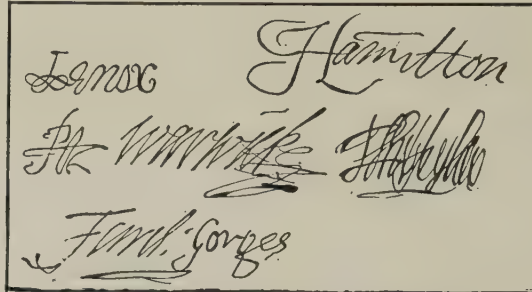 Lenox Hamilton
Ro Warwicke
Ferd: Gorges